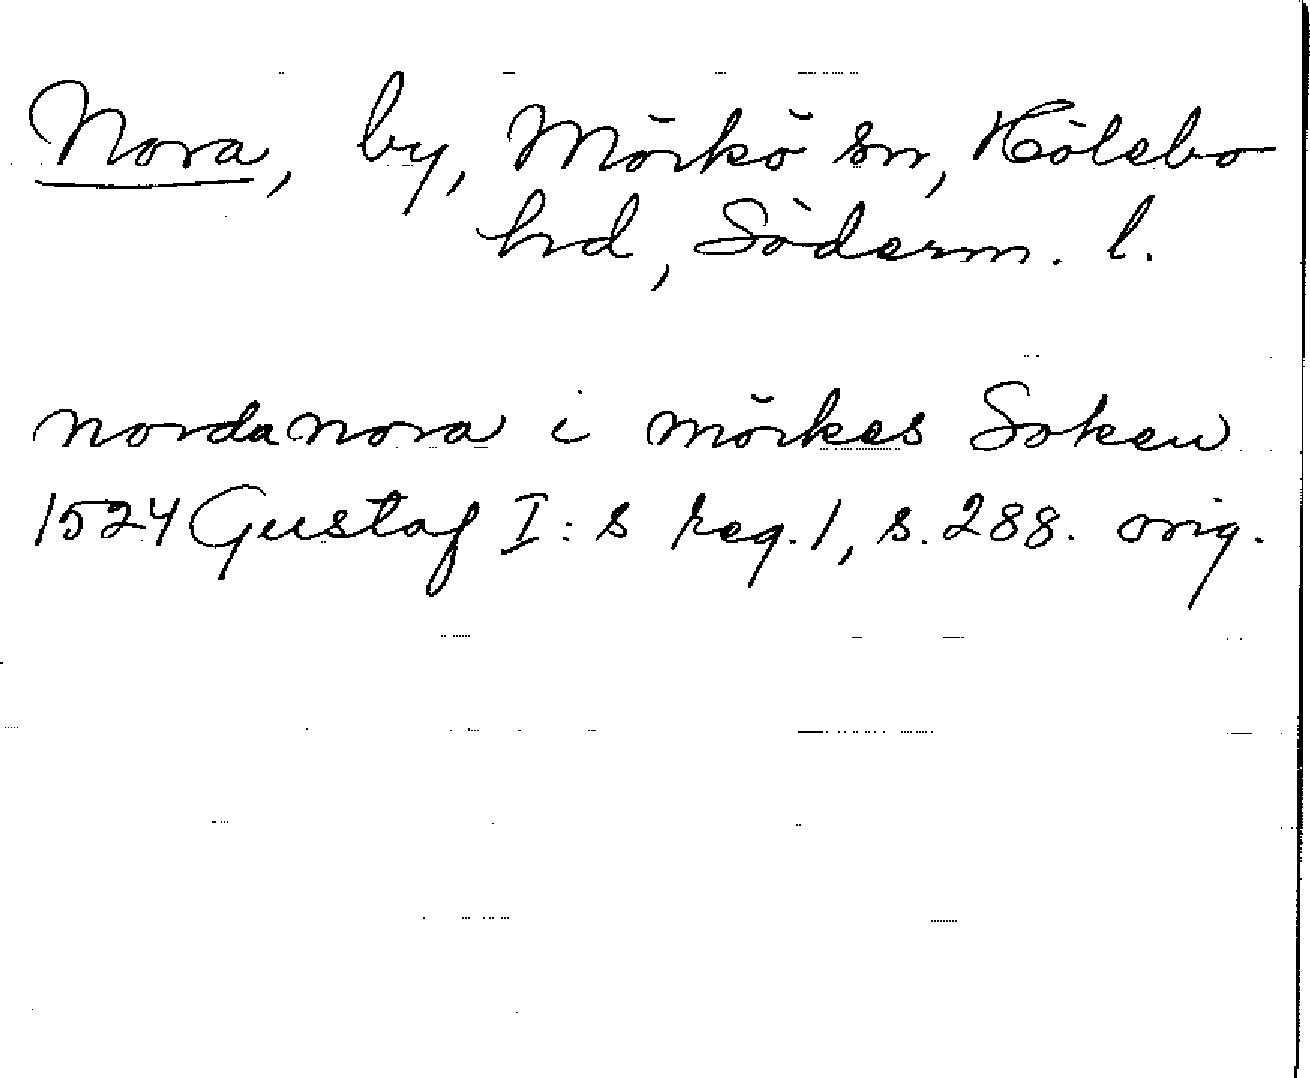 Nora, by, Mörkö sn, Hölebo
hd, Söderm. l.
nordanora i mörkes Soken
1524 Gustaf I:s reg. 1, s. 288. orig.